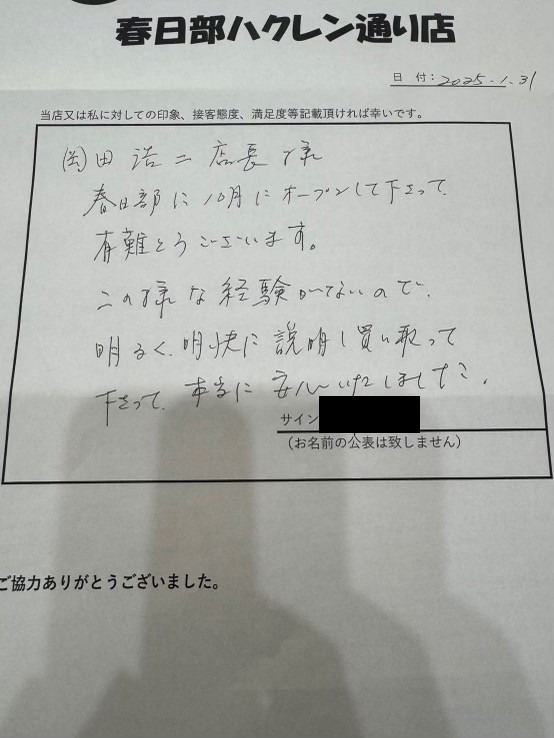 春日部ハクレン通り店
日 付：2025.1.31
当店又は私に対しての印象、接客態度、満足度等記載頂ければ幸いです。
岡田浩二店長様
春日部に10月にオープンして下さって、
有難とうございます。
この様な経験がないので、
明るく、明快に説明し買い取って
下さって、本当に安心いたしました。
サイン
（お名前の公表は致しません）
ご協力ありがとうございました。